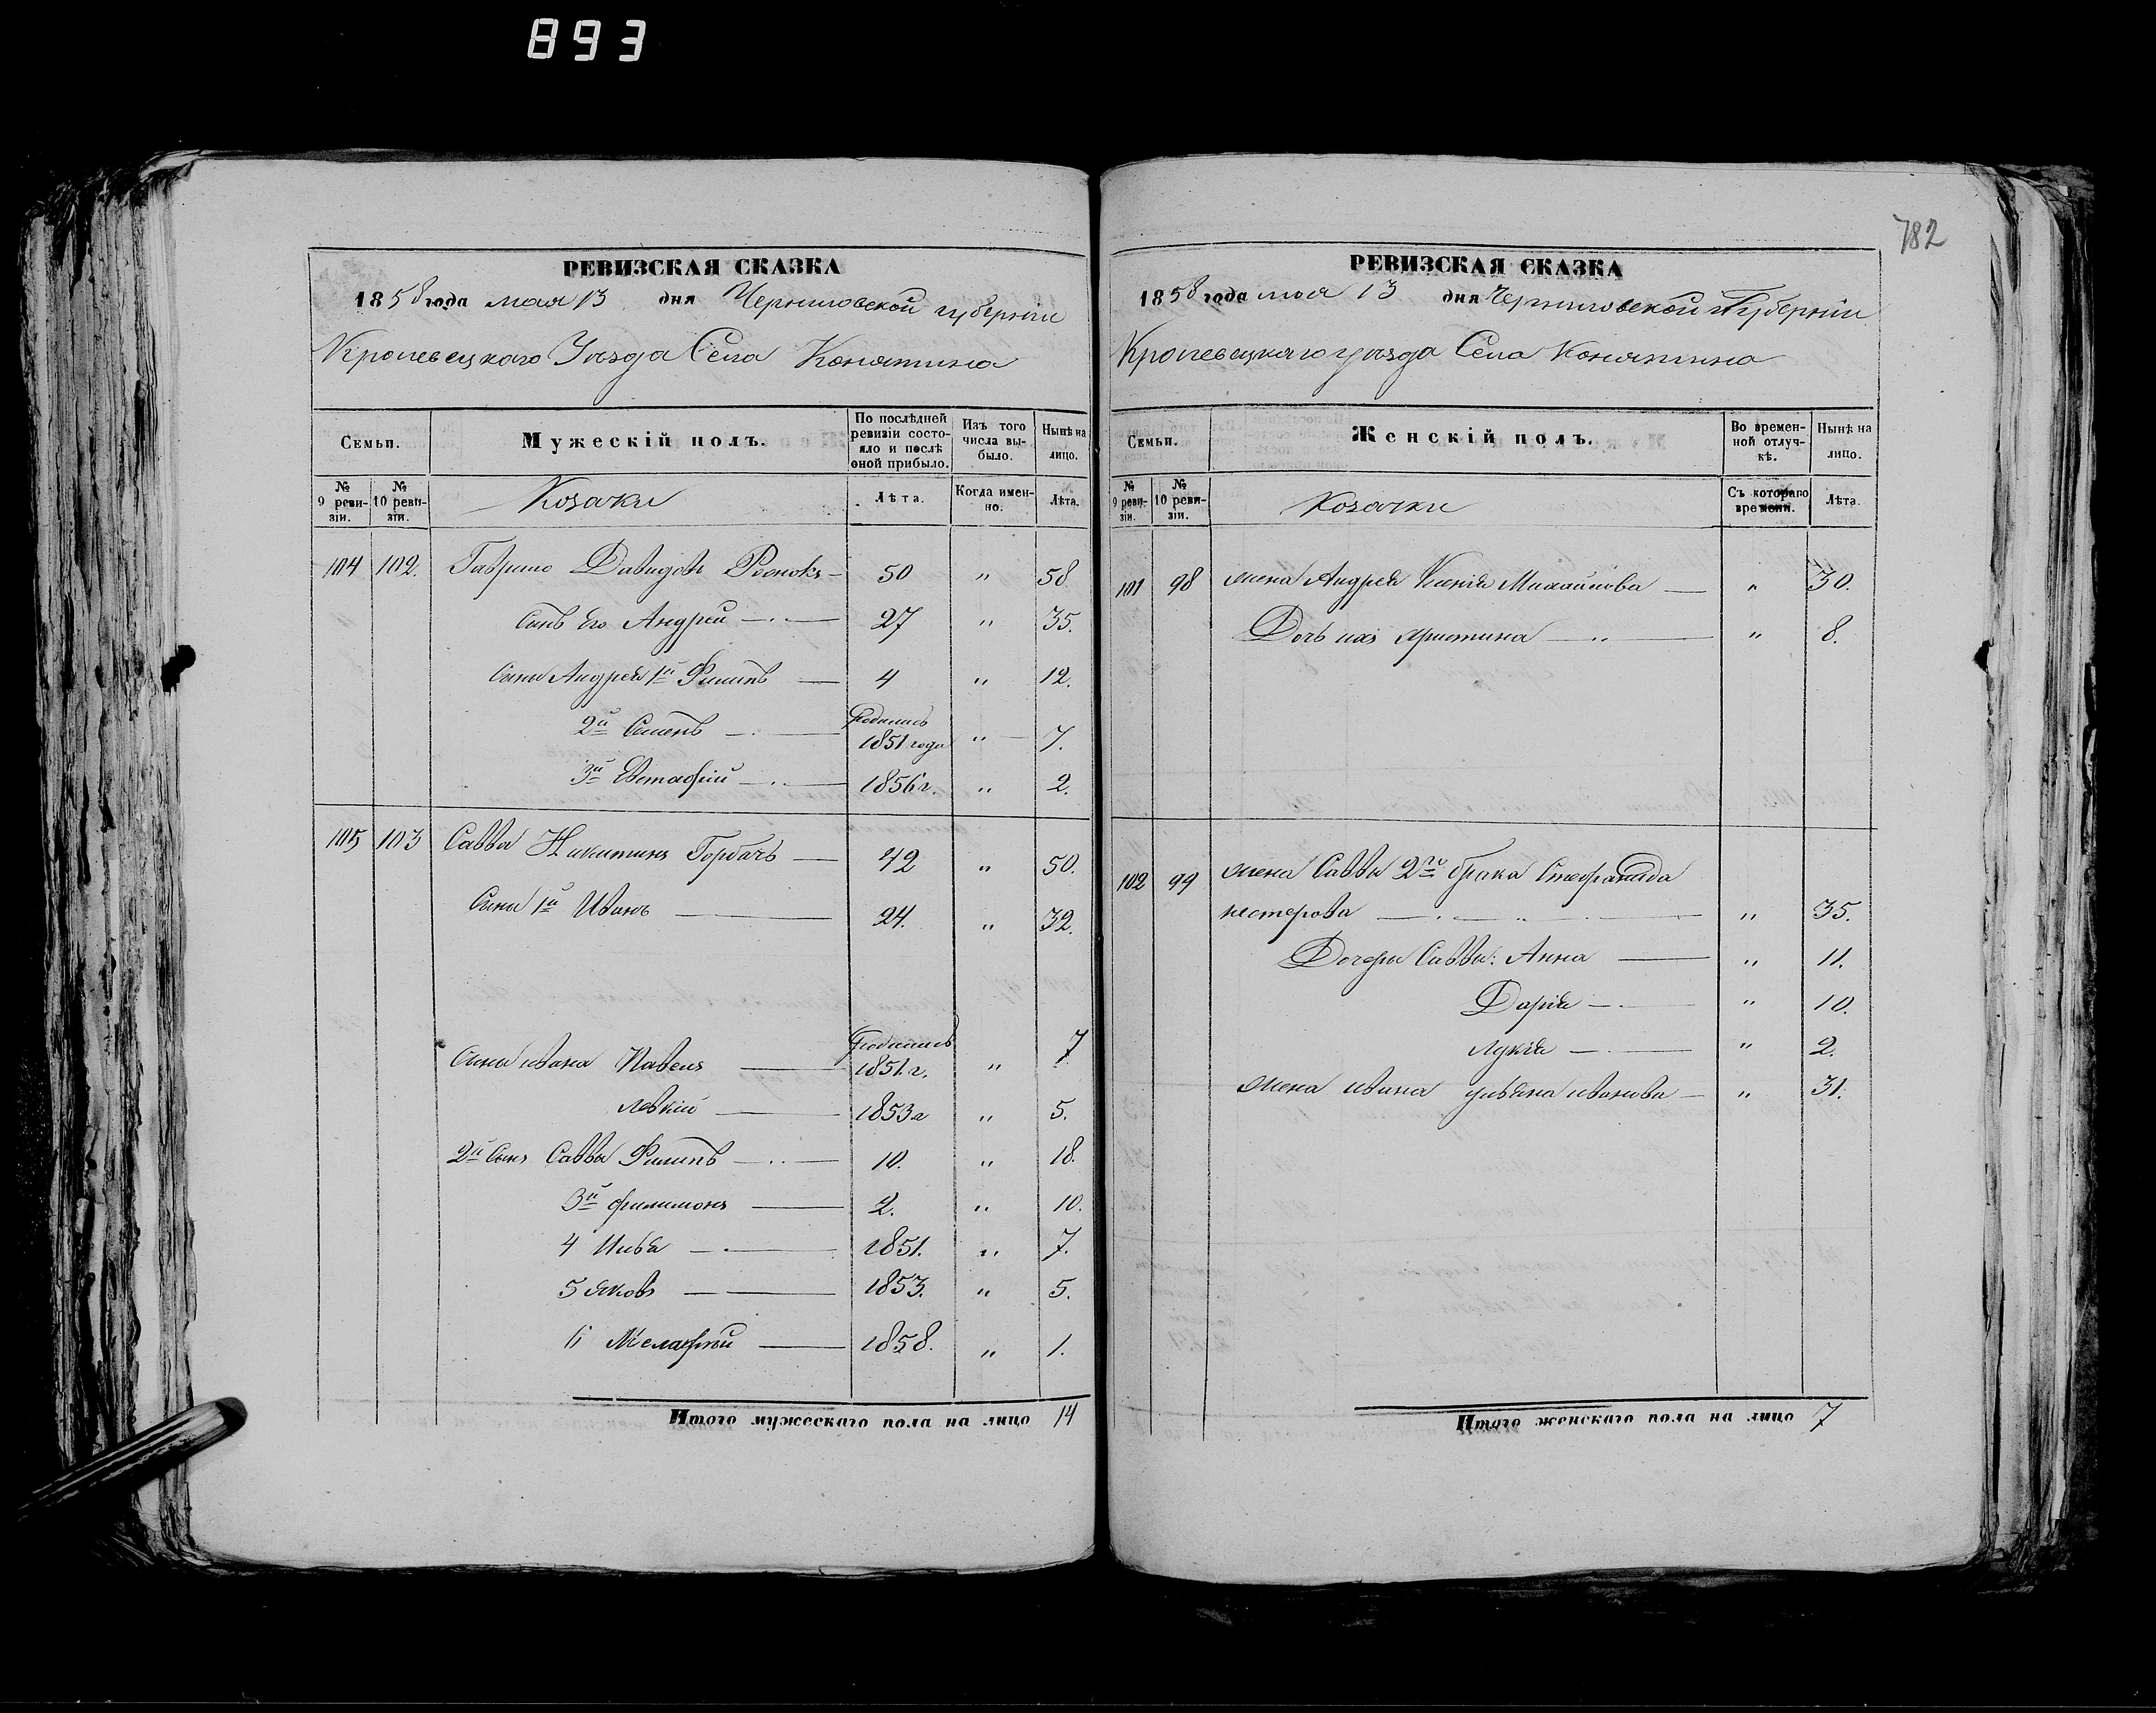 893
782
РЕВИЗСКАЯ СКАЗКА
1858 года мая 13 дня Черниговской губерніи
Кролевецкаго Уѣзда Села Конятина
Семьи.
Мужескій полъ.
По послѣдней ревизіи состояло и послѣ оной прибыло.
Изъ того числа выбыло.
Нынѣ на лицо.
№ 9 ревизіи.
№ 10 ревизіи.
Козаки
Лѣта.
Когда именно.
Лѣта.
104 102. Гаврило Давидовъ 50 " 58
Сынъ его Андрей 27 " 35.
Сыны Андрея 1й Филипъ 4 " 12.
2й Семенъ Родились 1851 года " 7.
3й Евстафій 1856 г. " 2.
105 103 Савва Никитинъ Горбачъ 42 " 50.
Сыны 1й Иванъ 24. " 32.
Сыны Ивана Павелъ Родились 1851 г. " 7
Левкій 1853 г " 5.
2й Сынъ Саввы Филипъ 10. " 18.
3й Филимонъ 2. " 10.
4 Илья 1851. " 7.
5 Яковъ 1853. " 5.
6 1858. " 1.
Итого мужескаго пола на лицо 14
РЕВИЗСКАЯ СКАЗКА
1858 года мая 13 дня Черниговской Губерніи
Кролевецкаго уѣзда Села Конятина
Семьи.
Женскій полъ.
Во временной отлучкѣ.
Нынѣ на лицо.
№ 9 ревизіи.
№ 10 ревизіи.
Козачки
Съ котораго времени.
Лѣта.
101 98 жена Андрея Ксенія Михайлова " 30.
Дочь ихъ Христина " 8.
102 99 жена Саввы 2го брака Стефанида
нестерова " 35.
Дочери Саввы: Анна " 11.
Дарія " 10.
Лукія " 2.
жена Ивана ульяна иванова " 31.
Итого женскаго пола на лицо 7